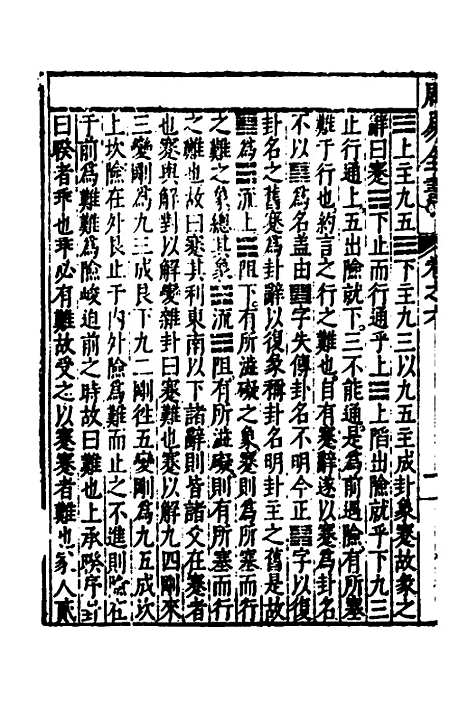 周易全書 卷之六 二
☵上主九五☶下主九三以九五主成卦象蹇故彖之
辭曰蹇☶下止而行通乎上☵上陷出險就乎下九三
止行通上五出險就下三不能通是為前遇險有所蹇
難于行也約言之行之難也自有蹇辭遂以蹇為卦名
不以䷦為名蓋由䷦字失傳卦名不明今正䷦字以復
卦名之舊蹇為卦辭以復象稱卦名明卦主之舊是故
䷦為☵流上☶阻下有所滋礙之象蹇則為所塞而行
之難之象總其象☵流☶阻有所滋礙則有所塞而行
之難也故曰蹇其利東南以下諸辭則皆諸爻在蹇者
也蹇與解對以解變雜卦曰蹇難也蹇以解九四剛來
三變剛為九三成艮下九二剛徃五變剛為九五成坎
上坎險在外艮止于內外險為難而止之不進則險在
于前為難難為險峻迫前之時故曰難也上承睽序卦
曰睽者乖也乖必有難故受之以蹇蹇者難也家人貳